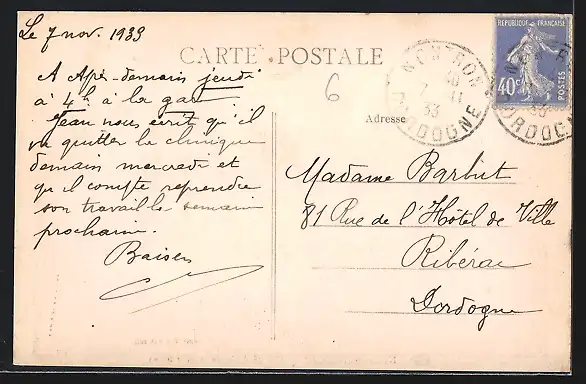 Le 7 nov. 1933
CARTE POSTALE
A Après-demain jeudi
à 4h à la gare
Jean nous écrit qu'il
va quitter la clinique
demain mercredi et
qu'il compte reprendre
son travail la semaine
prochaine.
Baisers
6
Adresse
Madame Barbut
81 Rue de l'Hôtel de Ville
Ribérac
Dordogne
NONTRON
7 11
33
DORDOGNE
REPUBLIQUE FRANÇAISE
40c
POSTES
33
DORDOGNE